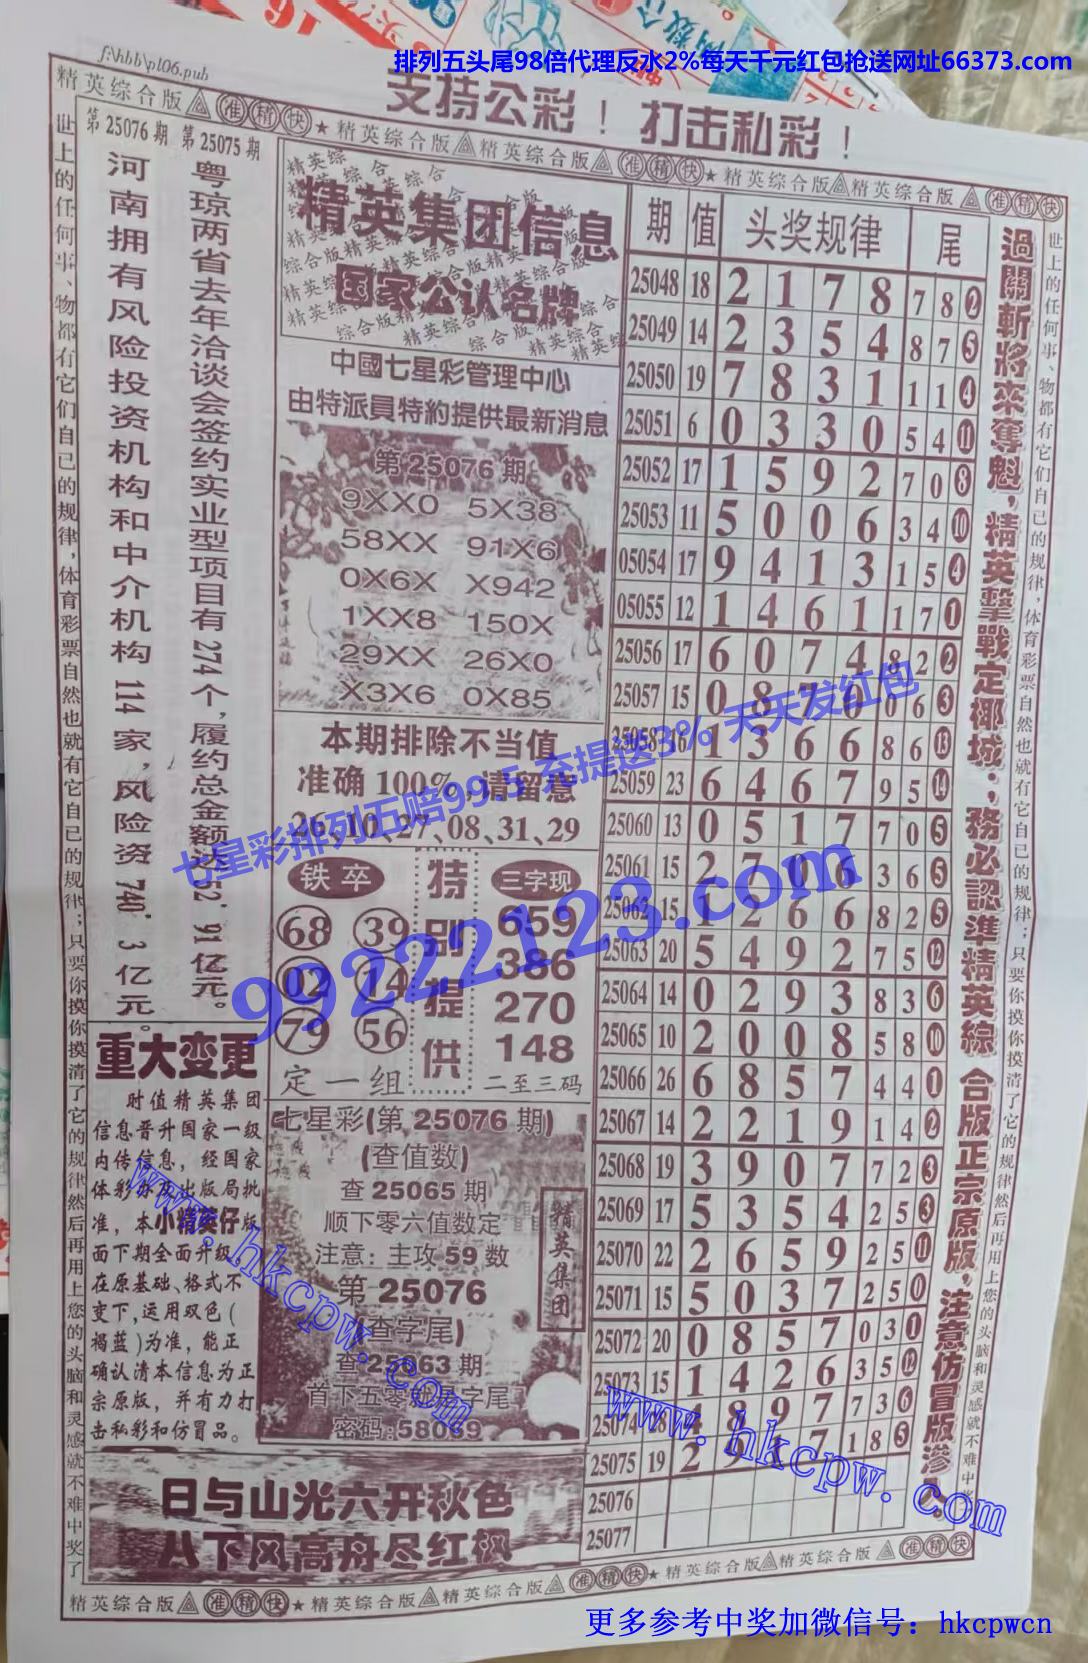 f:\hbb\pl06.pub
排列五头尾98倍代理反水2%每天千元红包抢送网址66373.com
支持公彩！打击私彩！
精英综合版 准精快 ★ 精英综合版 精英综合版 准精快 ★ 精英综合版 精英综合版 准精快
世上的任何事、物都有它们自己的规律，体育彩票自然也就有它自己的规律；只要你摸你摸清了它的规律然后再用上您的头脑和灵感就不难中奖了
第25076期 第25075期
粤琼两省去年洽谈会签约实业型项目有274个，履约总金额达52．91亿元。
河南拥有风险投资机构和中介机构114家，风险资740．3亿元。
重大变更
时值精英集团
信息晋升国家一级
内传信息，经国家
体彩办及出版局批
准，本小精英仔版
面下期全面升级。
在原基础、格式不
变下，运用双色（
褐蓝）为准，能正
确认清本信息为正
宗原版，并有力打
击私彩和仿冒品。
精英集团信息
国家公认名牌
中國七星彩管理中心
由特派員特約提供最新消息
第25076期
9XX0 5X38
58XX 91X6
0X6X X942
1XX8 150X
29XX 26X0
X3X6 0X85
本期排除不当值
准确100%，请留意
26、10、27、08、31、29
铁卒 特别提供 三字现
68 39 659
02 14 386
79 56 270
148
定一组 二至三码
七星彩(第25076期)
(查值数)
查25065期
顺下零六值数定
注意：主攻59数
第25076
(查字尾)
查25063期
密码:58069
精英集团
日与山光六开秋色
从下风高舟尽红枫
期 值 头奖规律 尾
25048 18 2 1 7 8 7 8 2
25049 14 2 3 5 4 8 7 5
25050 19 7 8 3 1 1 1 4
25051 6 0 3 3 0 5 4 11
25052 17 1 5 9 2 7 0 8
25053 11 5 0 0 6 3 4 10
05054 17 9 4 1 3 1 5 4
05055 12 1 4 6 1 1 7 1
25056 17 6 0 7 4 8 2 2
25057 15 0 8 7 0 0 6 3
25058 16 1 3 6 6 8 6 13
25059 23 6 4 6 7 9 5 14
25060 13 0 5 1 7 7 0 5
25061 15 2 7 0 6 3 6 5
25062 15 1 2 6 6 8 2 5
25063 20 5 4 9 2 7 5 12
25064 14 0 2 9 3 8 3 6
25065 10 2 0 0 8 5 8 10
25066 26 6 8 5 7 4 4 1
25067 14 2 2 1 9 1 4 2
25068 19 3 9 0 7 7 2 3
25069 17 5 3 5 4 2 5 3
25070 22 2 6 5 9 2 5 11
25071 15 5 0 3 7 2 5 0
25072 20 0 8 5 7 0 3 1
25073 15 1 4 2 6 3 5 12
25074 28 4 8 9 7 7 3 6
25075 19 2 9 1 7 1 8 5
25076
25077
過關斬將來奪魁，精英擊戰定椰城；務必認準精英綜合版正宗原版，注意仿冒版滲入。
世上的任何事、物都有它们自己的规律，体育彩票自然也就有它自己的规律；只要你摸你摸清了它的规律然后再用上您的头脑和灵感就不难中奖
七星彩排列五赔99.5 充提送3% 天天发红包
99222123.com
www.hkcpw.com
www.hkcpw.com
精英综合版 准精快 ★ 精英综合版 精英综合版 准精快 ★ 精英综合版 精英综合版 准精快
更多参考中奖加微信号：hkcpwcn